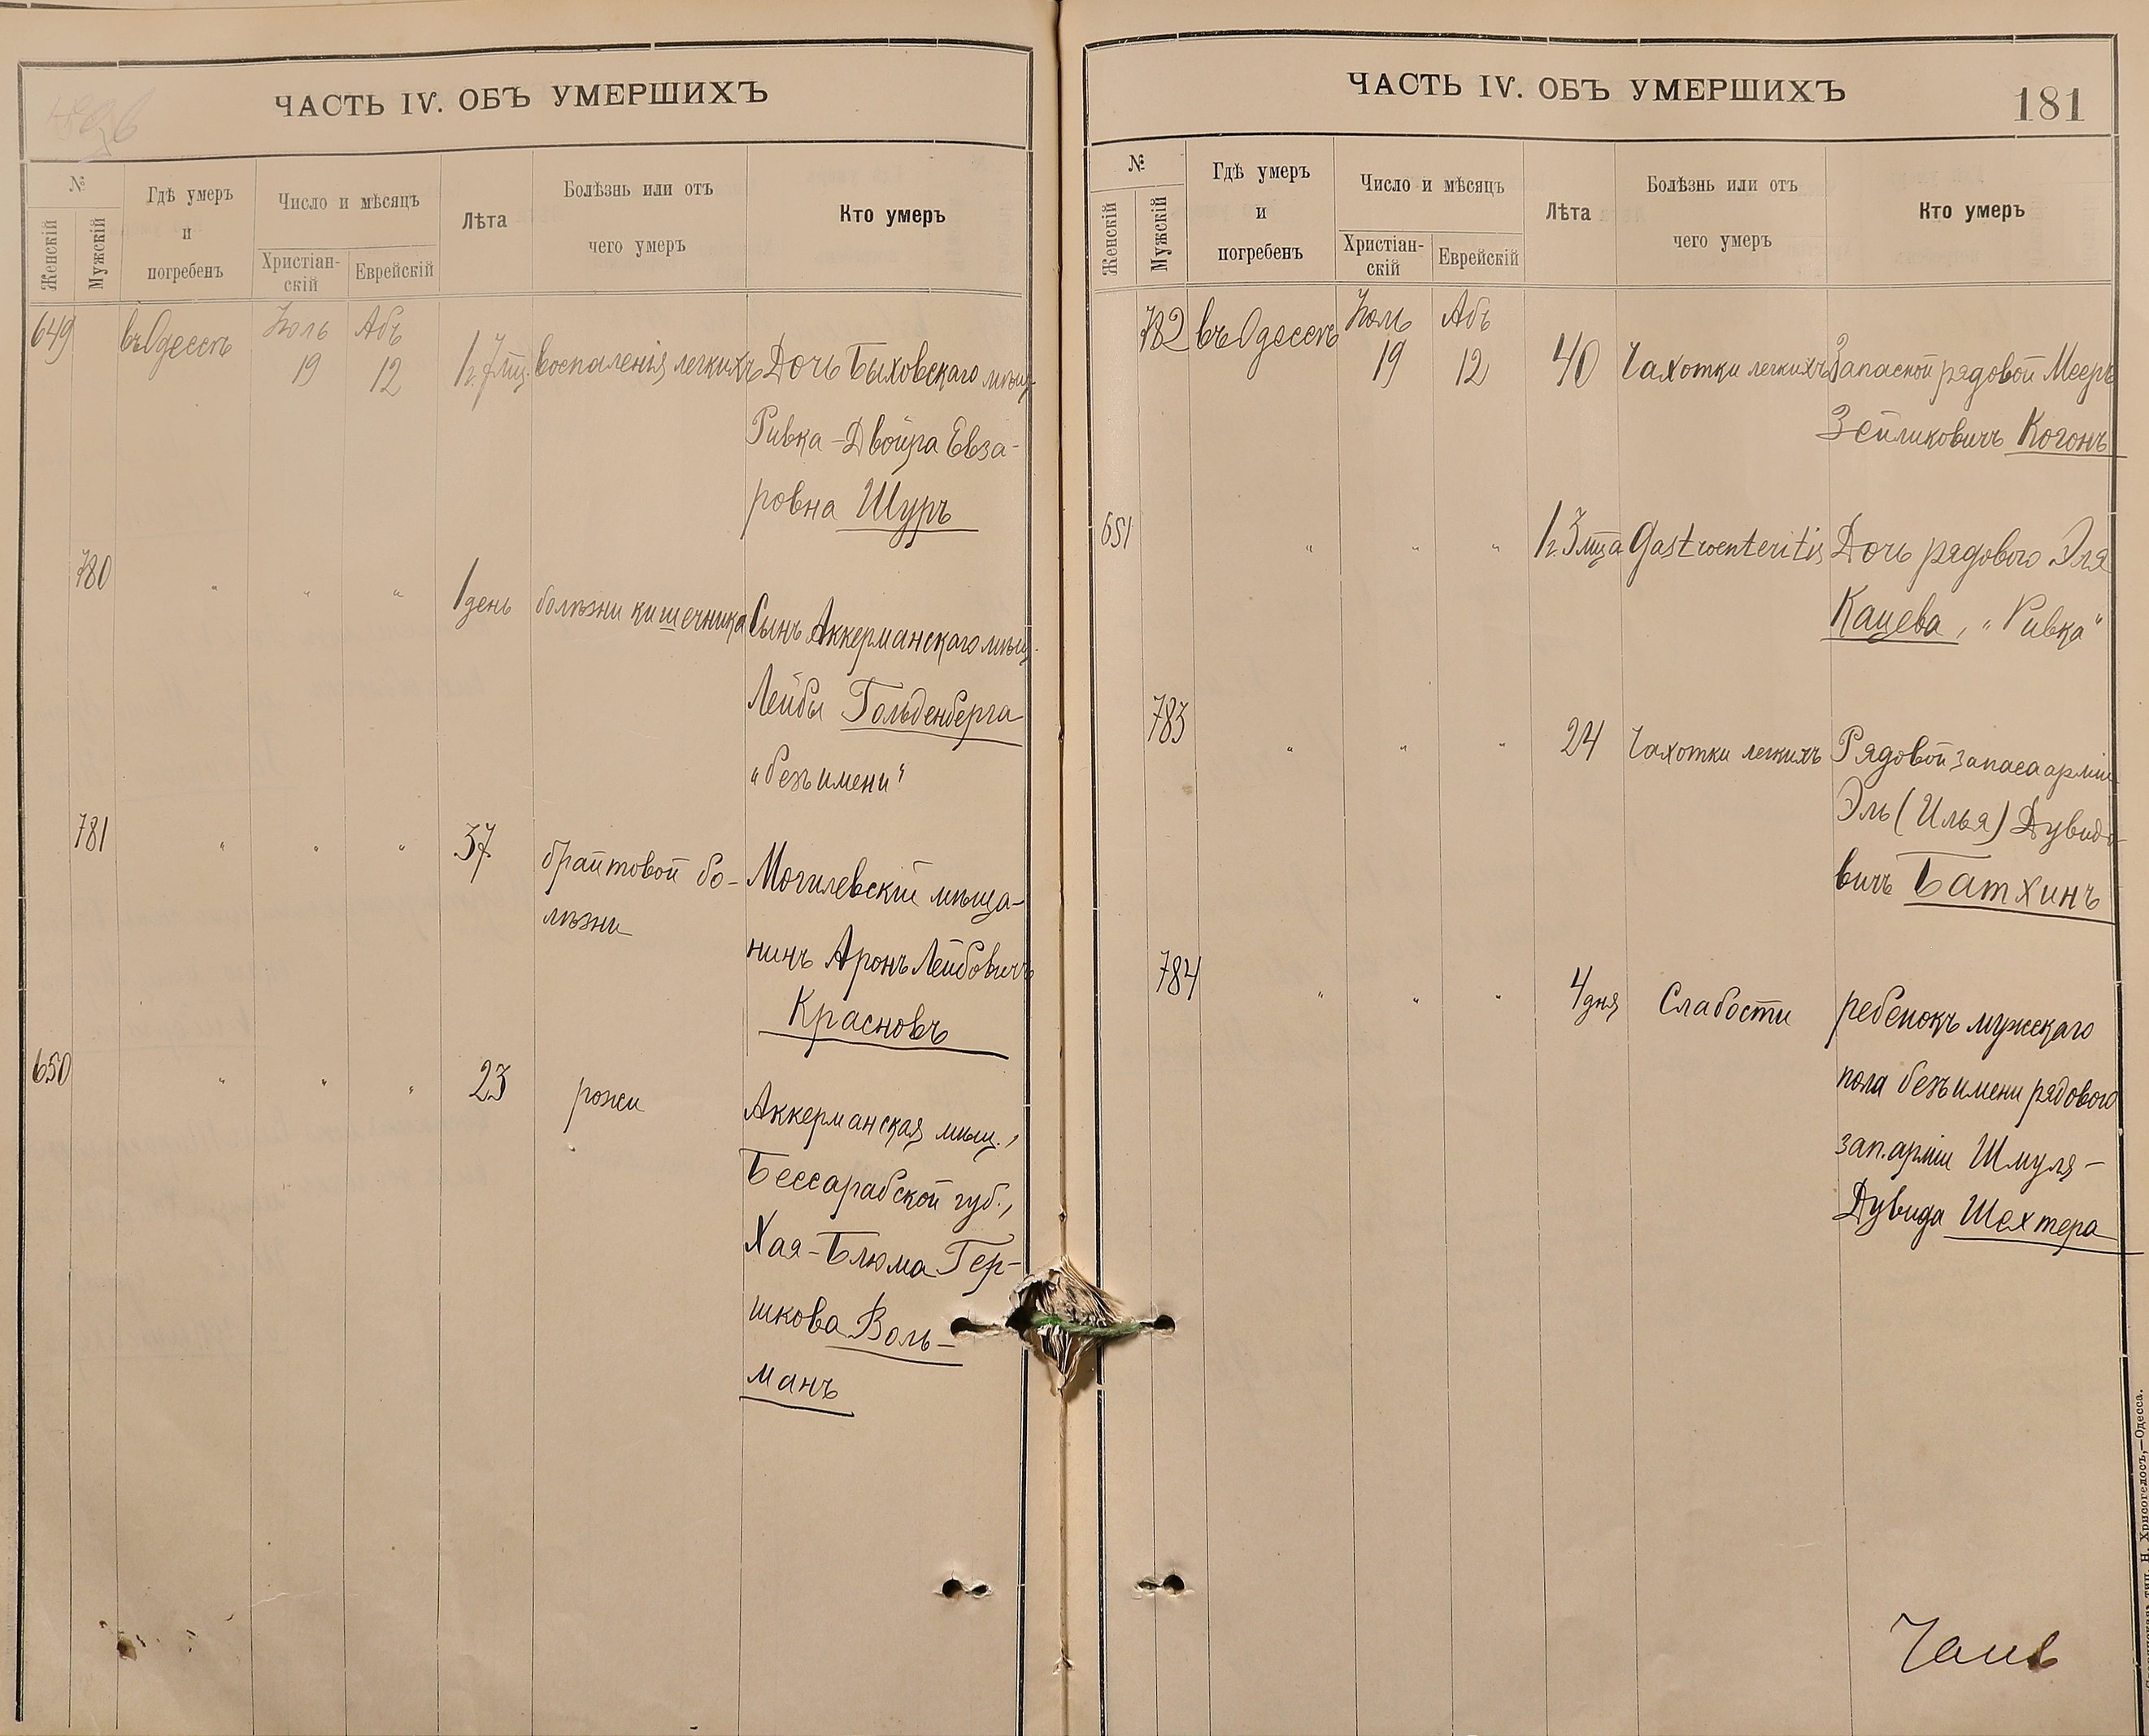 ЧАСТЬ IV. ОБЪ УМЕРШИХЪ
№
Женскій
Мужскій
Гдѣ умеръ
и
погребенъ
Число и мѣсяцъ
Христіан-
скій
Еврейскій
Лѣта
Болѣзнь или отъ
чего умеръ
Кто умеръ
649
въ Одессѣ
Іюль
19
Абъ
12
1 г. 7 мц.
воспаленія легкихъ
Дочь Быховскаго мѣщ.
Ривка-Двойра Евза-
ровна Шуръ
780
" " "
1 день
болѣзни кишечника
Сынъ Аккерманскаго мѣщ.
Лейбы Гольденберга
"безъ имени"
781
" " "
37
брайтовой бо-
лѣзни
Могилевскій мѣща-
нинъ Аронъ Лейбовичъ
Красновъ
650
" " "
23
рожи
Аккерманская мѣщ.,
Бессарабской губ.,
Хая-Блюма Гер-
шкова Воль-
манъ
ЧАСТЬ IV. ОБЪ УМЕРШИХЪ
181
№
Женскій
Мужскій
Гдѣ умеръ
и
погребенъ
Число и мѣсяцъ
Христіан-
скій
Еврейскій
Лѣта
Болѣзнь или отъ
чего умеръ
Кто умеръ
782
въ Одессѣ
Іюль
19
Абъ
12
40
Чахотки легкихъ
Запасной рядовой Мееръ
Зейликовичъ Когонъ
651
" " "
1 г. 3 мца
Gastroenteritis
Дочь рядового Эля
Кацева, "Ривка"
783
" " "
24
Чахотки легкихъ
Рядовой запаса арміи
Эль (Илья) Дувидо-
вичъ Батхинъ
784
" " "
4 дня
Слабости
ребенокъ мужскаго
пола безъ имени рядового
зап. арміи Шмуля-
Дувида Шехтера
тип. Н. Хрисогелосъ,—Одесса.